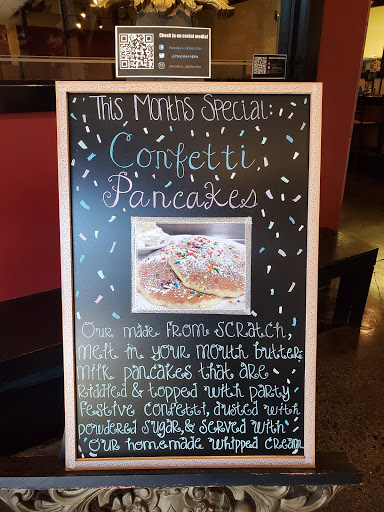 Check in on social media!
This Months Special:
Confetti
Pancakes
Our made from SCRatch,
melt in your mouth butter
milk pancakes that are
Riddled & topped with party
festive confetti, dusted with
powdered sugar, & served with
our homemade whipped cream